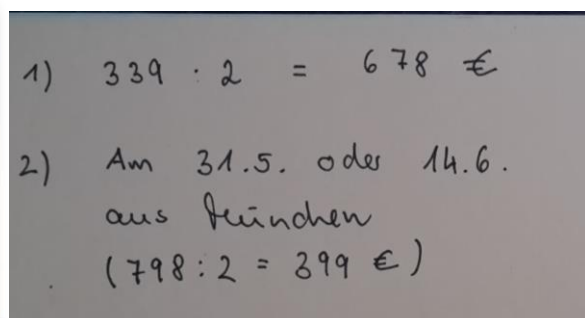 1) 339 : 2 = 678 €
2) Am 31.5. oder 14.6.
aus München
(798 : 2 = 399 €)